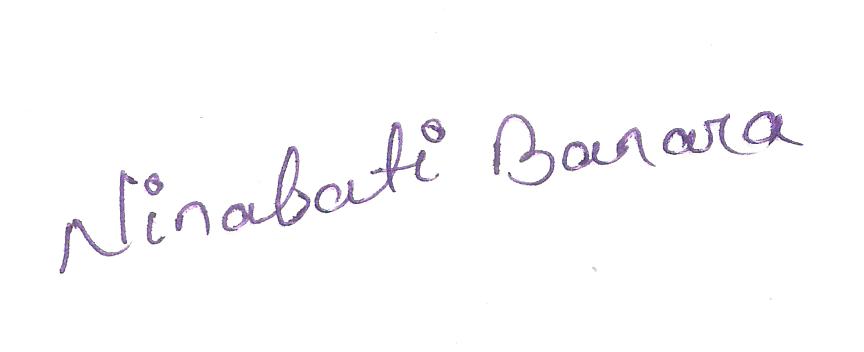 Ninabati Banara